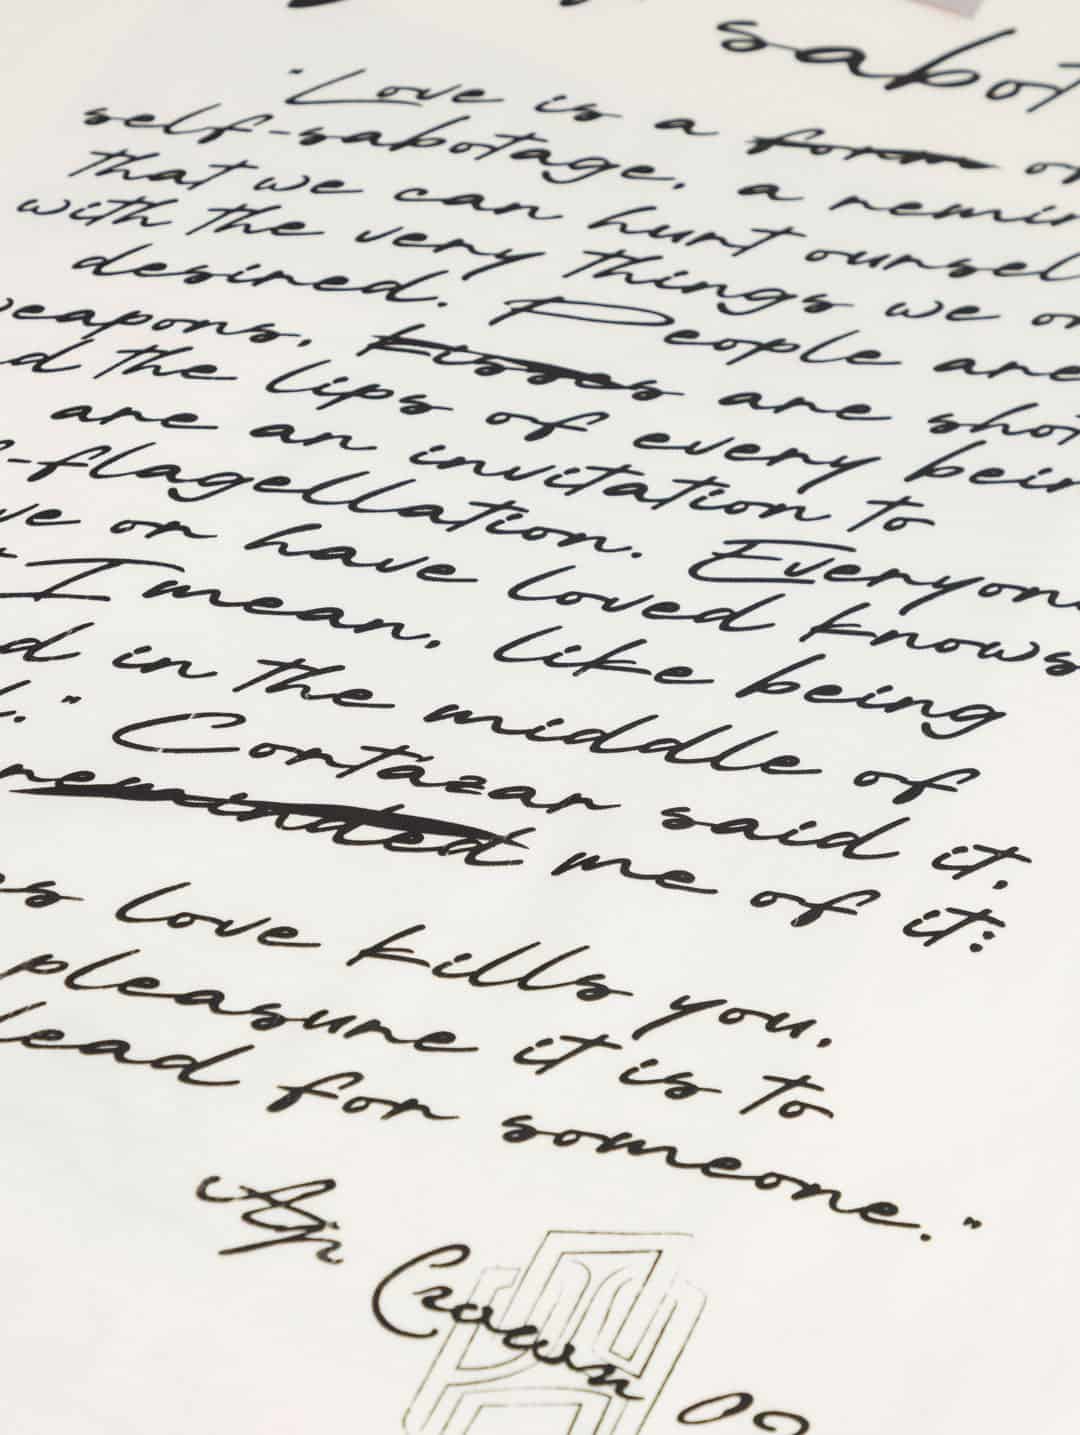 sabot
"Love is a form or
self-sabotage, a remin
that we can hurt oursel
with the very things we on
desired. People are
weapons, kisses are shot
d the lips of every bein
are an invitation to
-flagellation. Everyon
ve or have loved knows
I mean, like being
d in the middle of
." Cortázar said it,
reminded me of it:
es love kills you,
pleasure it is to
lead for someone."
Crown 02